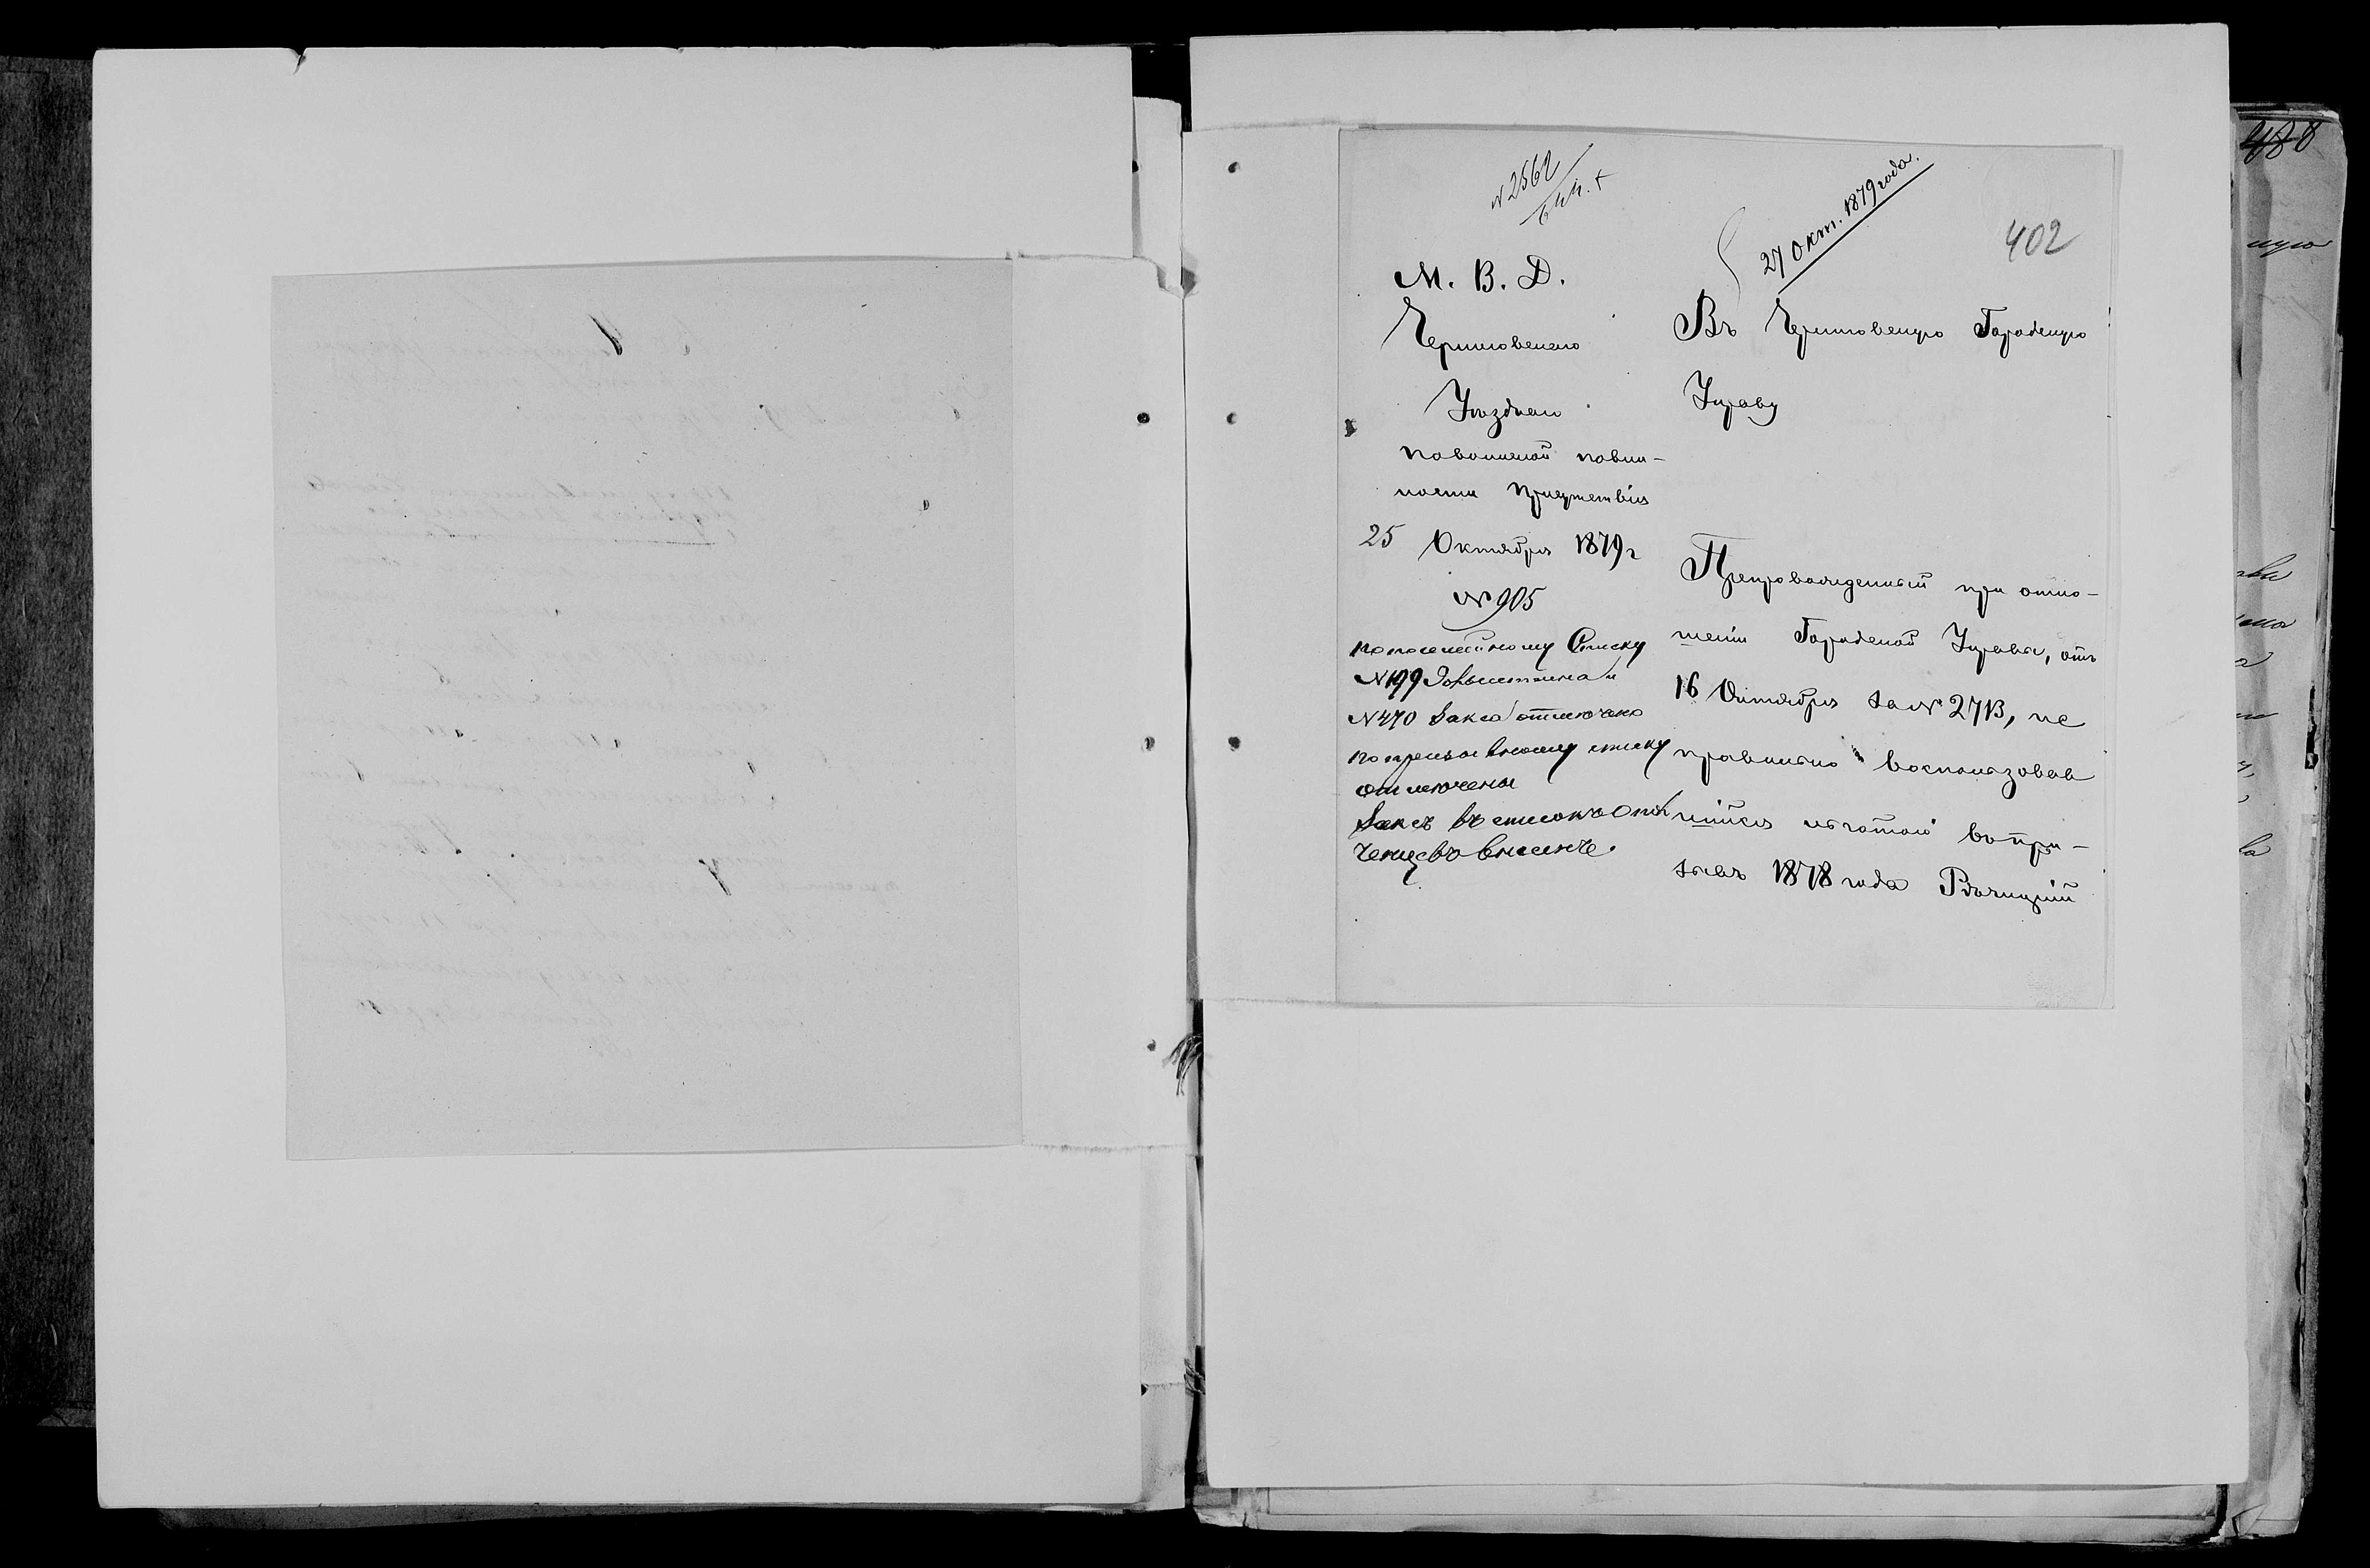 N 2562
27 Окт. 1879 года.
402
М. В. Д.
Черниговскаго
Уѣзднаго
по воинской повин-
ности Присутствія
25 Октября 1879 г
№ 905
по посемейному Списку
N 199 и
N 470 Закса отмечено
по призывному списку
отмечены
Заксъ въ списокъ
внесенъ.
Въ Черниговскую Городскую
Управу
Препровожденный при отно-
шеніи Городской Управы, отъ
16 Октября за № 2713, не
правильно воспользовав
шійся льготою въ при-
зывъ 1878 года Рѣчицкій
488
ную